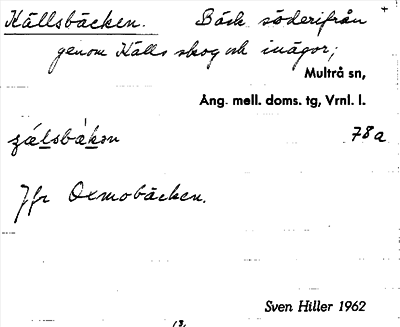 Källsbäcken. Bäck söderifrån
genom Källs skog och inägor;
Multrå sn,
Ång. mell. doms. tg, Vrnl. l.
78a
Jfr Oxmobäcken.
Sven Hiller 1962